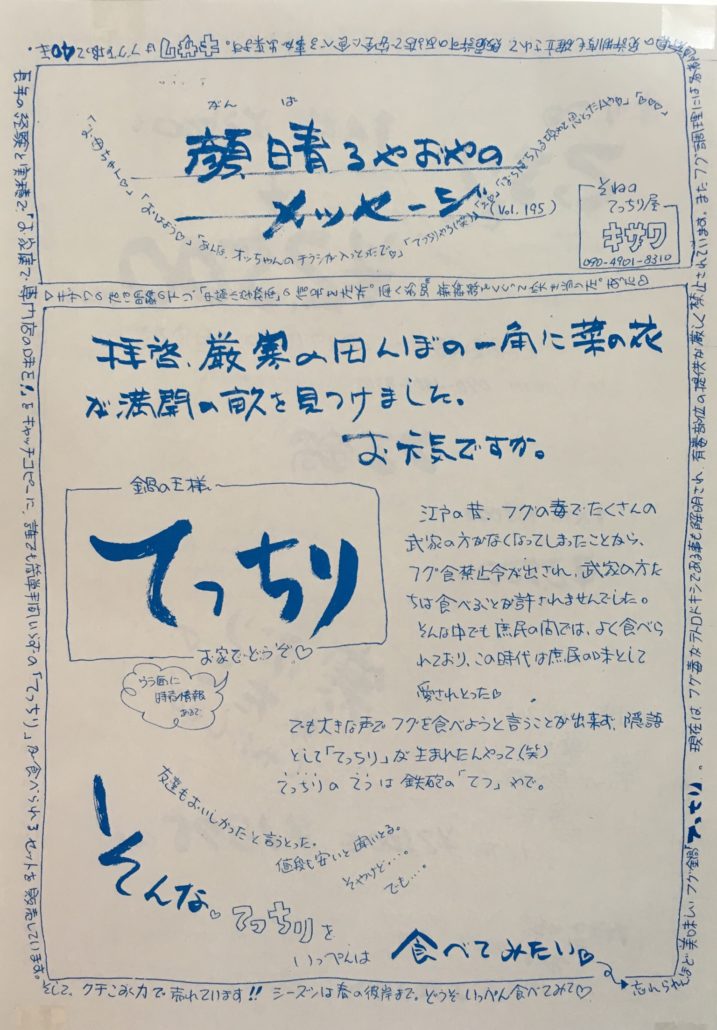 がん ば
顔晴るやおやの
メッセージ (Vol. 195)
「お母ちゃん♡」「おはよう♡」「あんな、オッちゃんのチラシが入っとったで♡」「てっちりやろ(笑)」
「ぼちぼち入る頃やと思とったんやわ」「♡♡♡」
そねの
てっちり屋
キサワ
090-4901-8310
拝啓、厳寒の田んぼの一角に菜の花
が満開の畝を見つけました。
お元気ですか。
鍋の王様
てっちり
お家でどうぞ♡
うう面に
時価情報
あるで
江戸の昔、フグの毒でたくさんの
武家の方がなくなってしまったことから、
フグ食禁止令が出され、武家の方た
ちは食べることが許されませんでした。
そんな中でも庶民の間では、よく食べら
れており、この時代は庶民の味として
愛されとった♡
でも大きな声でフグを食べようと言うことが出来ず、隠語
として「てっちり」が生まれたんやって(笑)
てっちりの てつ は 鉄砲の「てつ」やで。
友達もおいしかったと言うとった。
値段も安いと聞いとる。
そやけど・・・。
でも・・・。
そんな♡てっちりを
いっぺんは 食べてみたい♡
忘れられんほど美味しいフグ鍋「てっちり」。現在は、フグ毒がテトロドトキシンである事も解明され、有毒部位の提供が厳しく禁止されています。またフグ調理には
キサワはフグを扱って40年。
長年の経験と実績で「お政庫で専門店の味を!」をキャッチコピーに、誰でも簡単手間いらずの「てっちり」が食べられるセットを販売しています。
そして、クチこみ力で売れています!! シーズンは春の彼岸まで。どうぞいっぺん食べてみて♡